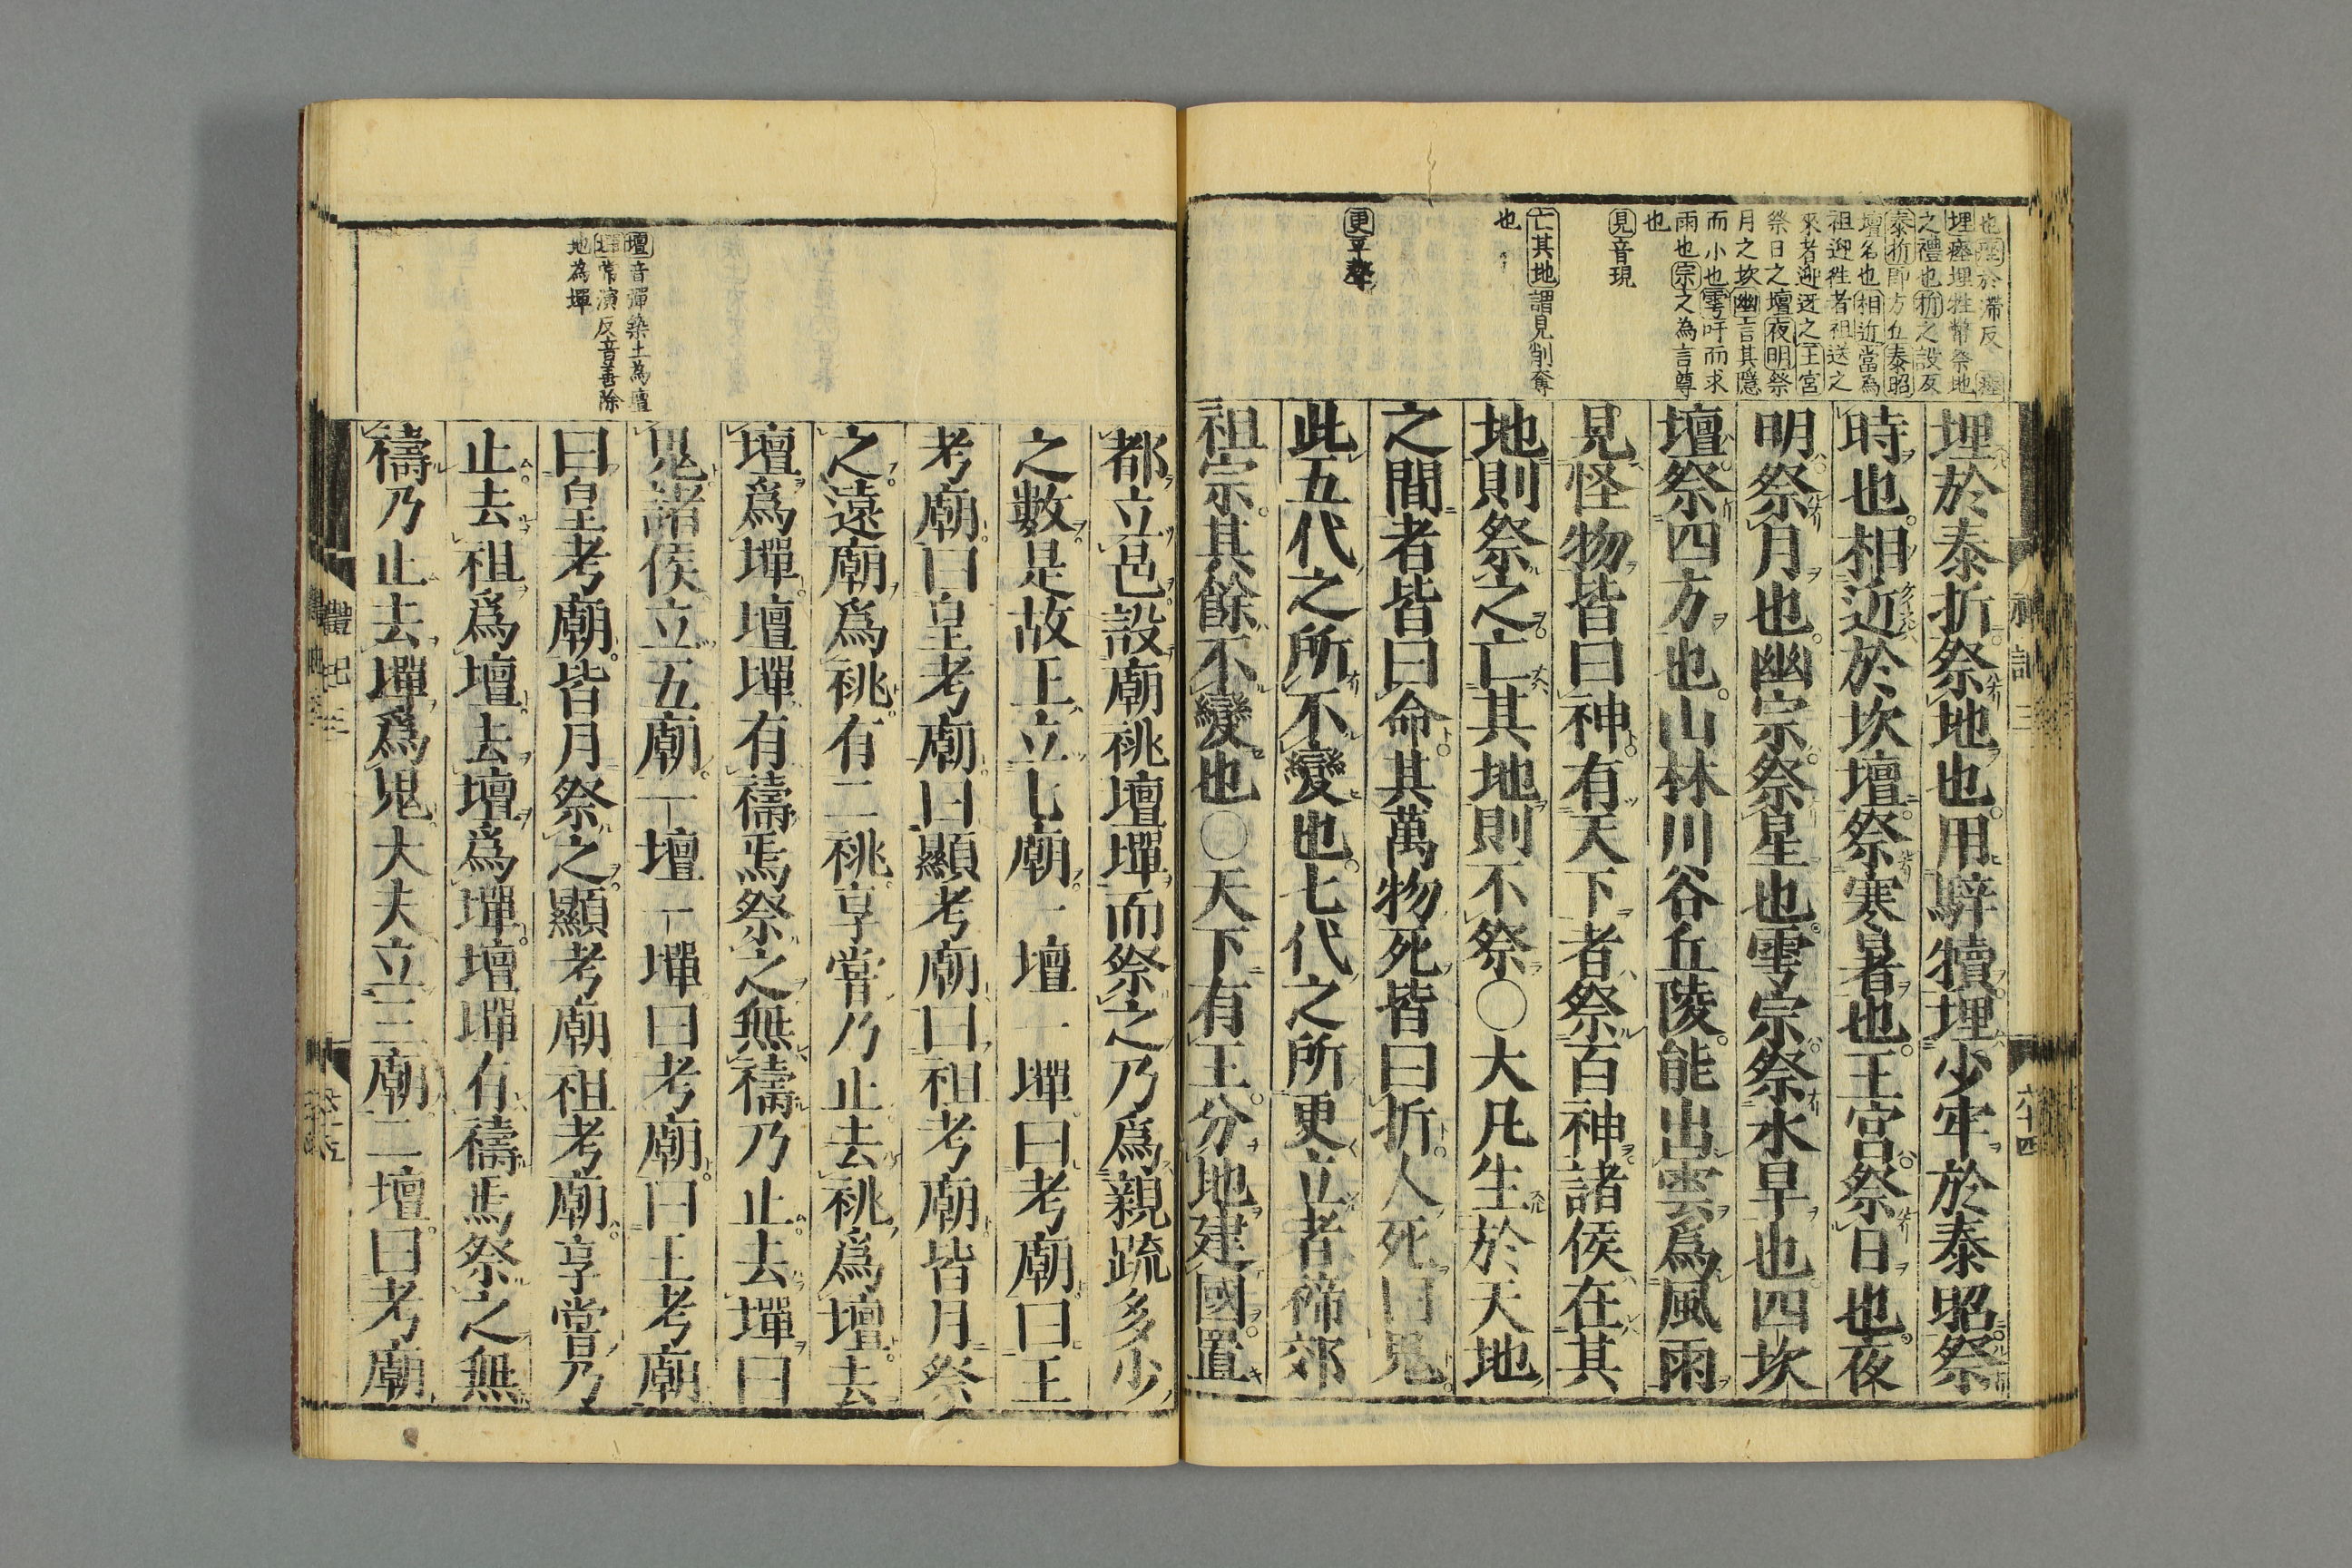 也瘞於滯反瘞
埋瘞埋牲幣祭地
之禮也折之設反
泰折即方丘泰昭
壇名也相近當為
祖迎牲者祖送之
來者迎迓之王宮
祭日之壇夜明祭
月之坎幽言其隱
而小也雩吁而求
雨也宗之為言尊
也
見音現
亡其地謂見削奪
也
更平聲
埋於泰折祭地也用騂犢埋少牢於泰昭祭
時也相近於坎壇祭寒暑也王宮祭日也夜
明祭月也幽宗祭星也雩宗祭水旱也四坎
壇祭四方也山林川谷丘陵能出雲爲風雨
見怪物皆曰神有天下者祭百神諸侯在其
地則祭之亡其地則不祭○大凡生於天地
之間者皆曰命其萬物死皆曰折人死曰鬼
此五代之所不變也七代之所更立者禘郊
祖宗其餘不變也○天下有王分地建國置
六十四
壇音彈築土為壇
墠常演反音善除
地為墠
都立邑設廟祧壇墠而祭之乃爲親疏多少
之數是故王立七廟一壇一墠曰考廟曰王
考廟曰皇考廟曰顯考廟曰祖考廟皆月祭
之遠廟爲祧有二祧享嘗乃止去祧爲壇去
壇爲墠壇墠有禱焉祭之無禱乃止去墠曰
鬼諸侯立五廟一壇一墠曰考廟曰王考廟
曰皇考廟皆月祭之顯考廟祖考廟享嘗乃
止去祖爲壇去壇爲墠壇墠有禱焉祭之無
禱乃止去墠爲鬼大夫立三廟二壇曰考廟
禮記三